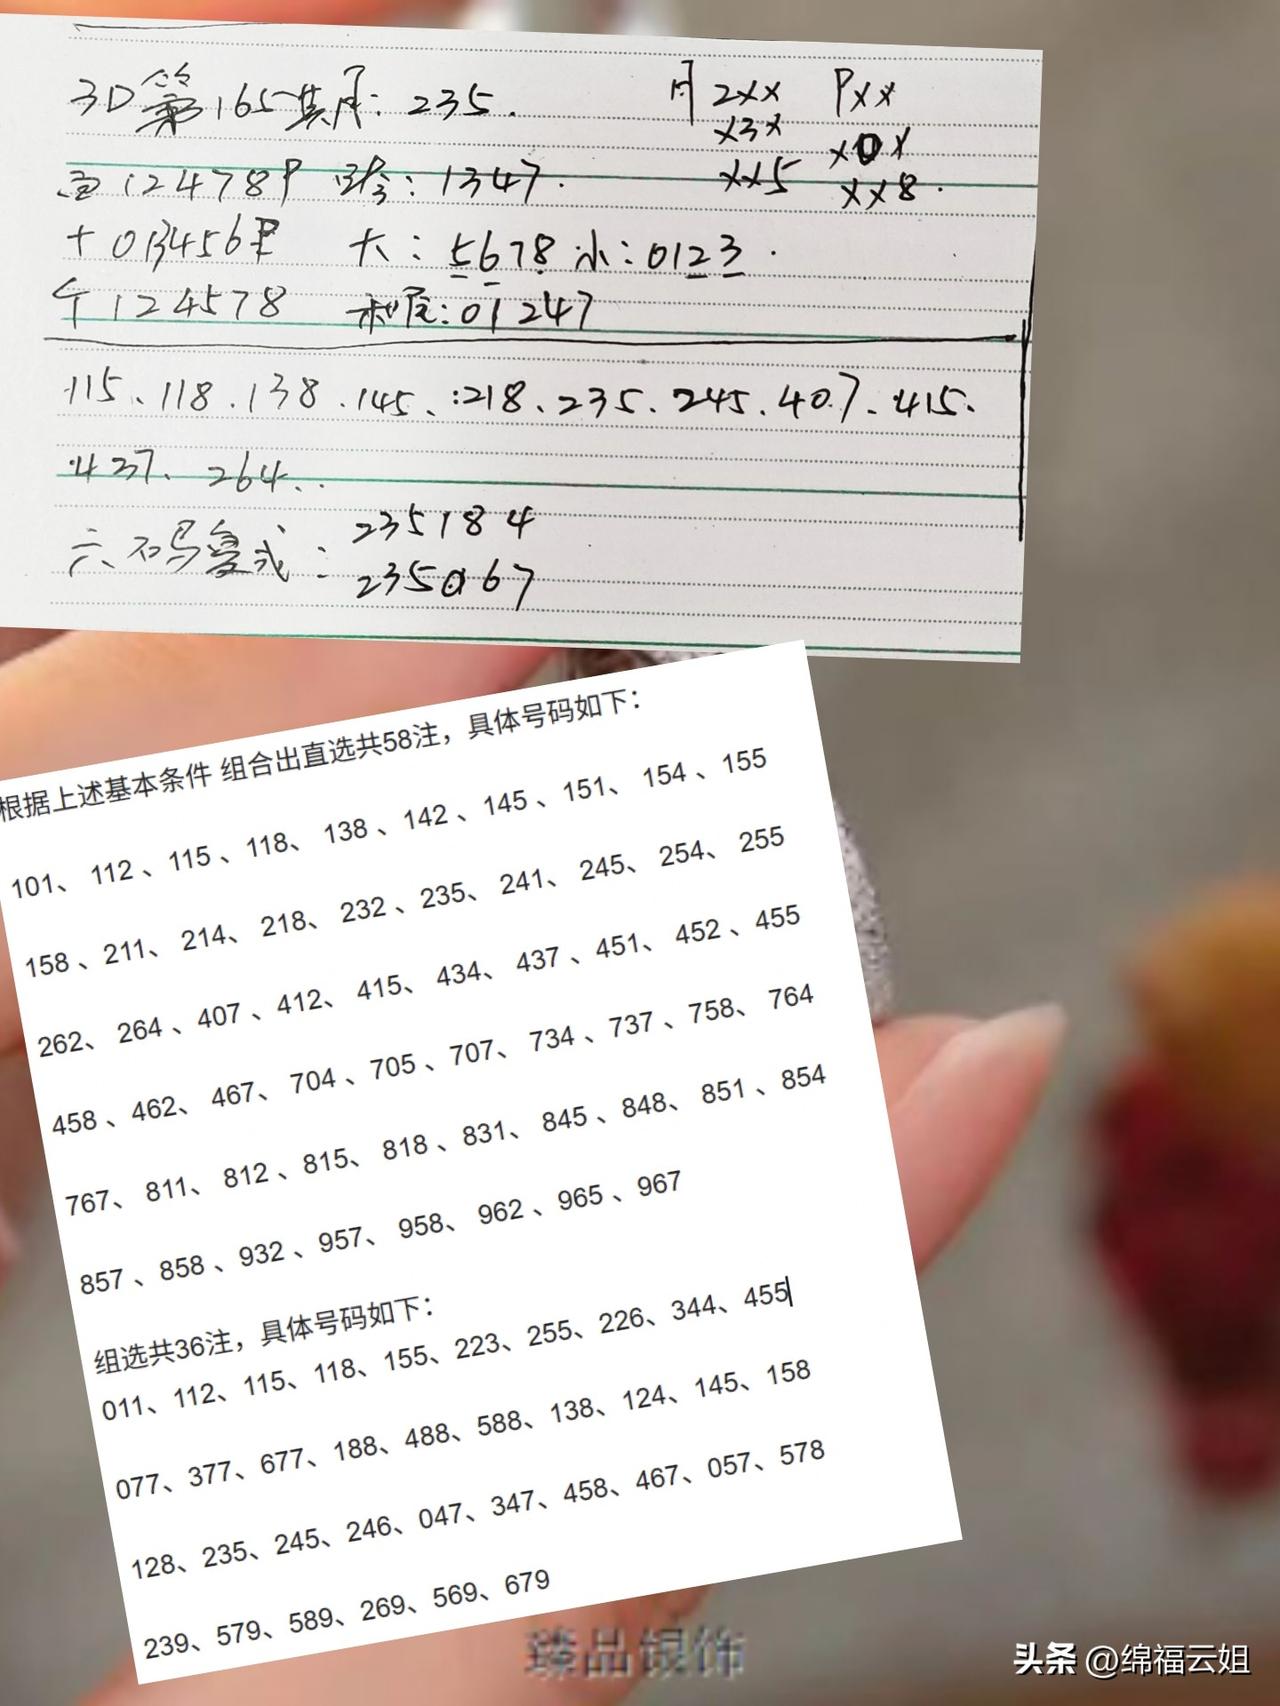 3D第165期用: 235.
用 2XX PXX
X3X X0X
XX5 XX8.
百124789 跨: 1347.
十013456 大: 5678 小: 0123.
个124578 和尾: 01247
115、118.138.145、218、235.245.407、415、
437、264..
六码复式: 235184
235067
根据上述基本条件 组合出直选共58注，具体号码如下：
101、 112 、115 、118、 138 、142 、145 、151、 154 、155
158 、211、 214、 218、 232 、235、 241、 245、 254、 255
262、 264 、407 、412、 415、 434、 437 、451、 452 、455
458 、462、 467、 704 、705 、707、 734 、737 、758、 764
767、 811、 812 、815、 818 、831、 845 、848、 851 、854
857 、858 、932 、957、 958、 962 、965 、967
组选共36注，具体号码如下：
011、112、115、118、155、223、255、226、344、455
077、377、677、188、488、588、138、124、145、158
128、235、245、246、047、347、458、467、057、578
239、579、589、269、569、679
臻品银饰
头条 @绵福云姐